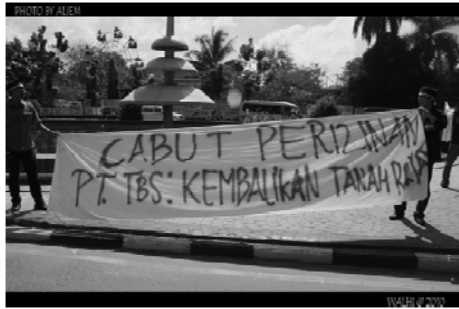 PHOTO BY ALIEM
CABUT PERIZINAN
PT. TBS: KEMBALIKAN TANAH
WALHI @ 2010